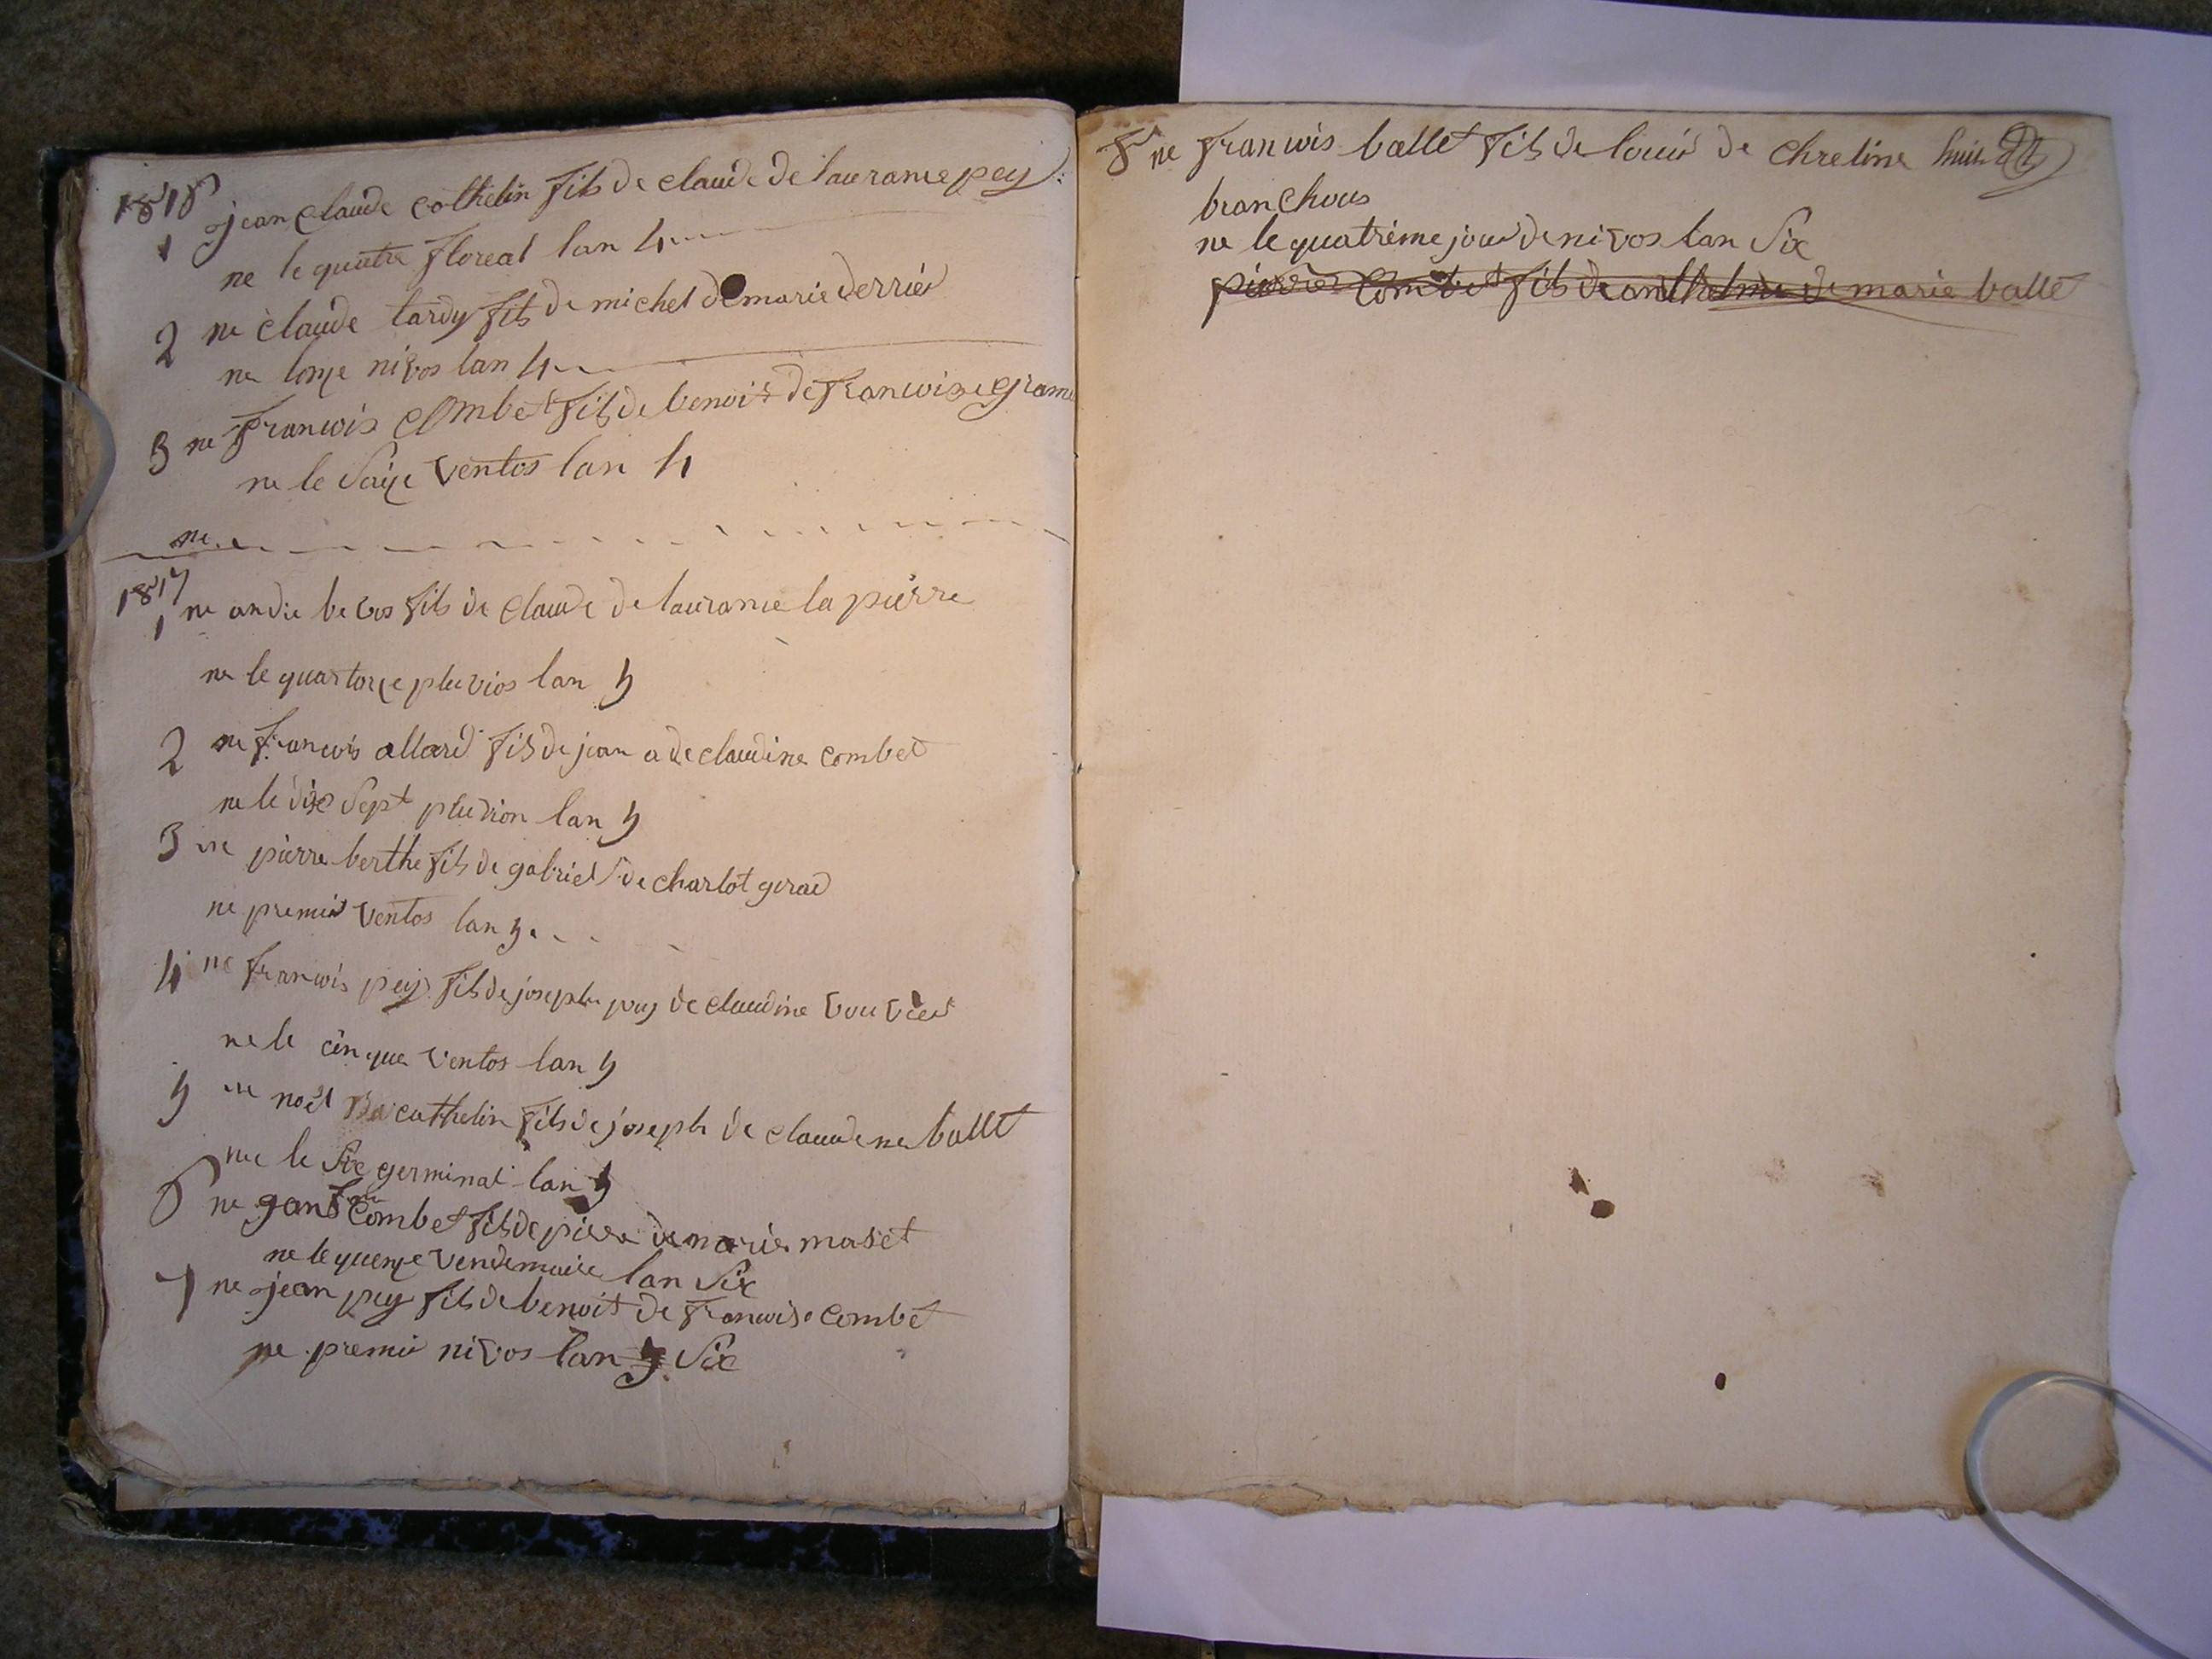 1818
1 jean claude cothelin fils de claude de laurance pey
ne le quatre floreal lan 4
2 ne claude tardy fils de michel de marie derrier
ne lonze nivos lan 4
3 ne francois Combet fils de benoit de francoise gram
ne le saize ventos lan 4
ne
1817
1 ne andre bevos fils de claude de laurance la pierre
ne le quartorze pluvios lan 5
2 ne francois allard fils de jean a de claudine combet
ne le dix sept pluvion lan 5
3 ne pierre berthe fils de gabriel de charlot gerad
ne premier ventos lan 5
4 ne francois pey fils de joseph pey de claudine vouvier
ne le cinque ventos lan 5
5 ne noel cathelin fils de joseph de claudene ballet
ne le six germinal lan 5
6 ne Combet fils de pierre de marie maset
ne le quenze vendemaire lan six
7 ne jean pey fils de benoit de francoise combet
ne premier nivos lan 5 six
8 ne francois ballet fils de louis de chretine
branchous
ne le quatrieme jour de nivos lan six
pierre Combet fils de anthelme de marie ballet